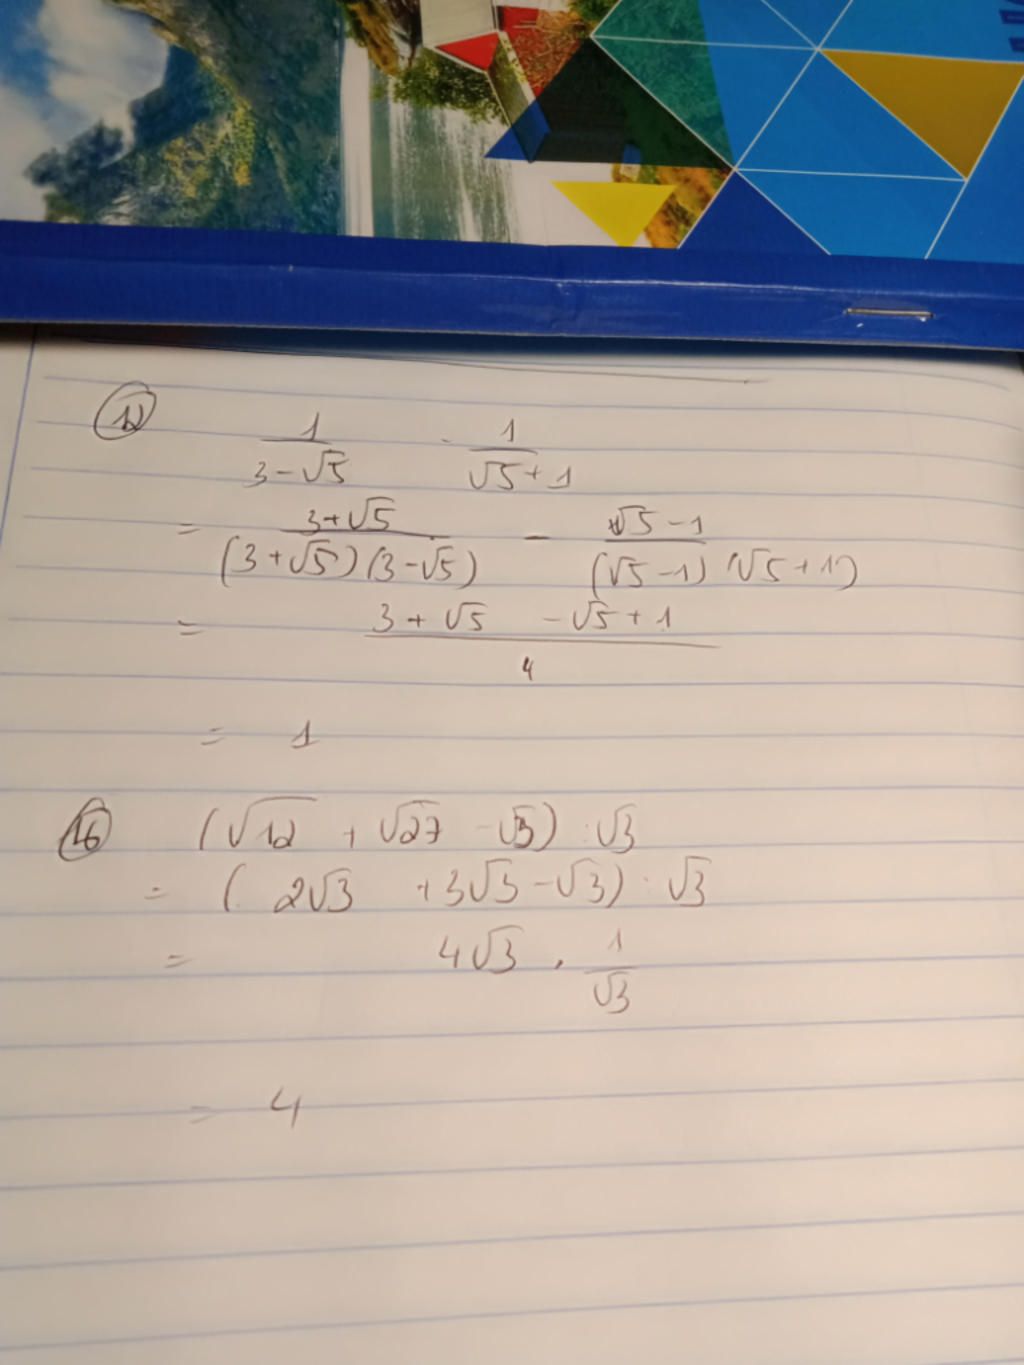 12
1/(3-√5) - 1/(√5+1)
= (3+√5)/((3+√5)(3-√5)) - (√5-1)/((√5-1)(√5+1))
= (3+√5 -√5+1)/4
= 1
16 (√12 + √27 -√3) : √3
= (2√3 +3√3-√3) : √3
= 4√3 . 1/√3
= 4